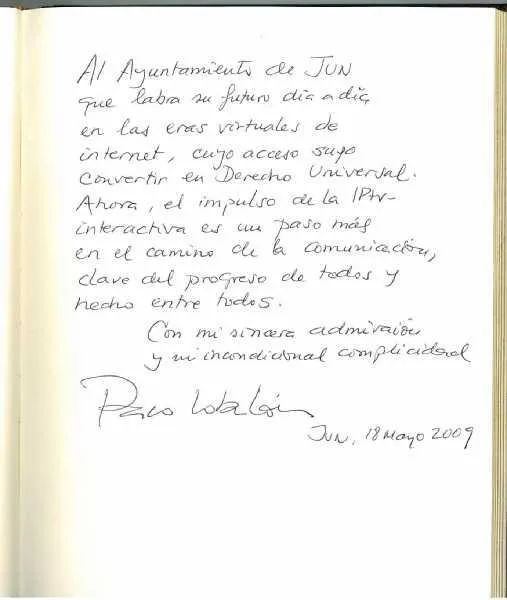 Al Ayuntamiento de JUN
que labra su futuro día a día,
en las eras virtuales de
internet, cuyo acceso supo
convertir en Derecho Universal.
Ahora, el impulso de la IPtv-
interactiva es un paso más
en el camino de la comunicación,
clave del progreso de todos y
hecho entre todos.
Con mi sincera admiración
y mi incondicional complicidad
Paco Lobatón
JUN, 18 Mayo 2009